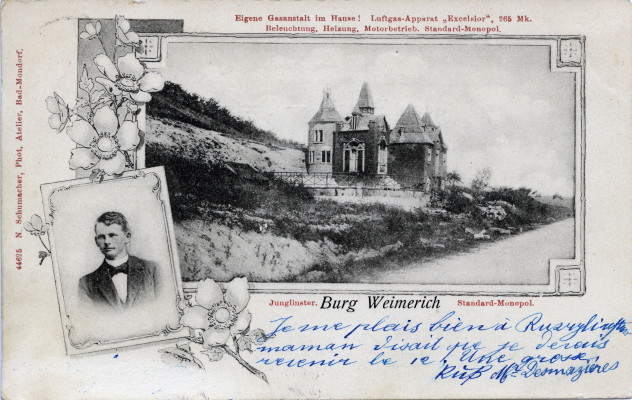 Eigene Gasanstalt im Hause! Luftgas-Apparat „Excelsior", 765 Mk.
Beleuchtung, Heizung, Motorbetrieb. Standard-Monopol.
44625 N. Schumacher, Phot. Atelier, Bad-Mondorf.
Junglinster. Burg Weimerich Standard-Monopol.
Je me plais bien à
maman disait que je devais
revenir le 12, Une grosse
Kuß Desmazières